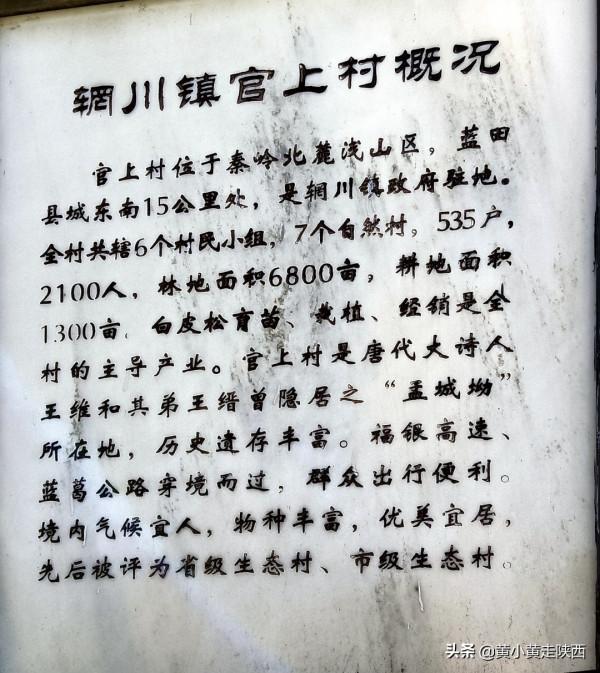 辋川镇官上村概况
官上村位于秦岭北麓浅山区，蓝田
县城东南15公里处，是辋川镇政府驻地。
全村共辖6个村民小组，7个自然村，535户，
2100人，林地面积6800亩，耕地面积
1300亩，白皮松育苗、栽植、经销是全
村的主导产业。官上村是唐代大诗人
王维和其弟王缙曾隐居之“孟城坳”
所在地，历史遗存丰富。福银高速、
蓝葛公路穿境而过，群众出行便利。
境内气候宜人，物种丰富，优美宜居，
先后被评为省级生态村、市级生态村。
头条 @黄小黄走陕西